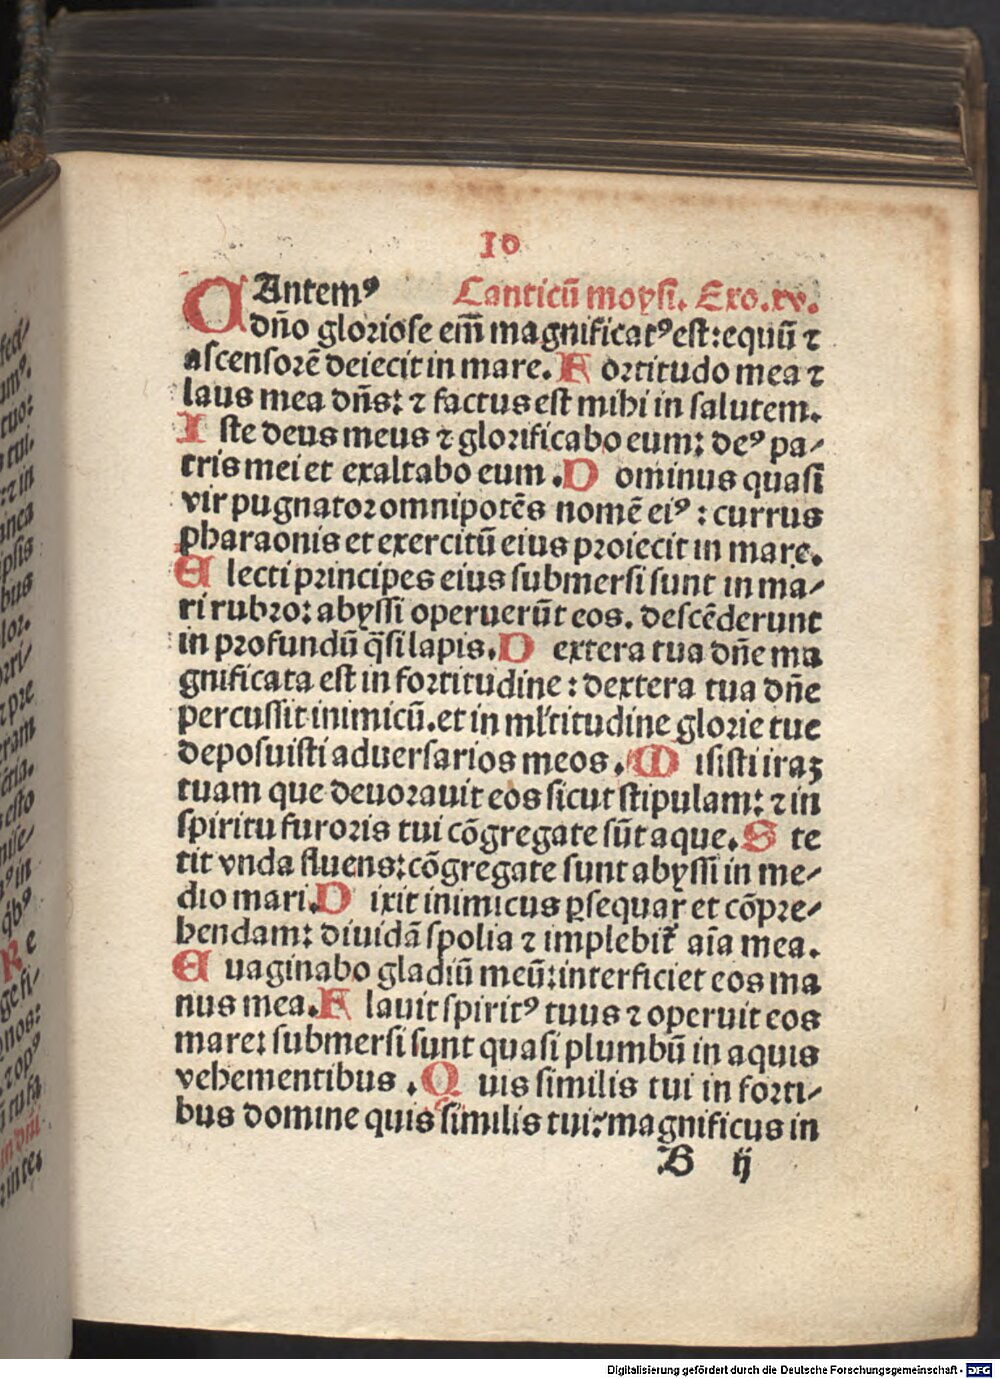 10
CAntemꝰ Canticū moysi. Exo.xv.
dño gloriose em̄ magnificatꝰ est: equū ⁊
ascensorē deiecit in mare. Fortitudo mea ⁊
laus mea dñs: ⁊ factus est mihi in salutem.
Iste deus meus ⁊ glorificabo eum: deꝰ pa⸗
tris mei et exaltabo eum. Dominus quasi
vir pugnator omnipotēs nomē eiꝰ: currus
pharaonis et exercitū eius proiecit in mare.
Electi principes eius submersi sunt in ma⸗
ri rubro: abyssi operuerūt eos. descēderunt
in profundū q̄si lapis. Dextera tua dñe ma
gnificata est in fortitudine: dextera tua dñe
percussit inimicū. et in ml̓titudine glorie tue
deposuisti aduersarios meos. Misisti iraꝫ
tuam que deuorauit eos sicut stipulam: ⁊ in
spiritu furoris tui cōgregate sūt aque. Ste
tit vnda fluens: cōgregate sunt abyssi in me⸗
dio mari. Dixit inimicus ꝑsequar et cōpre⸗
hendam: diuidā spolia ⁊ implebit᷑ aīa mea.
Euaginabo gladiū meū: interficiet eos ma
nus mea. Flauit spiritꝰ tuus ⁊ operuit eos
mare: submersi sunt quasi plumbū in aquis
vehementibus. Quis similis tui in forti⸗
bus domine quis similis tui: magnificus in
B ij
Digitalisierung gefördert durch die Deutsche Forschungsgemeinschaft - DFG